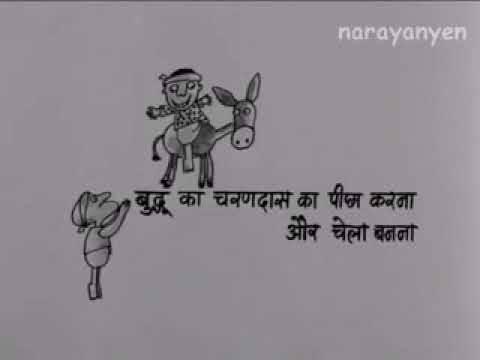 narayanyen
बुद्धू का चरणदास का पीछा करना
और चेला बनना